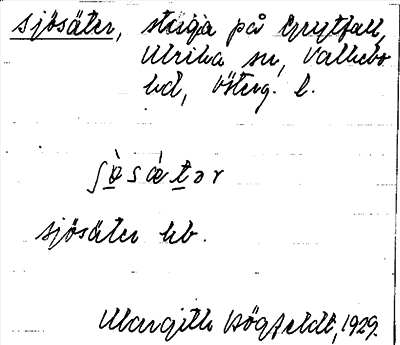 sjösäter, stuga på Grytfall,
Ulrika sn, Valkebo
hd, Österg. l.
ʃɵ̀sætər
sjösäter hb.
Margith Högfeldt, 1929.